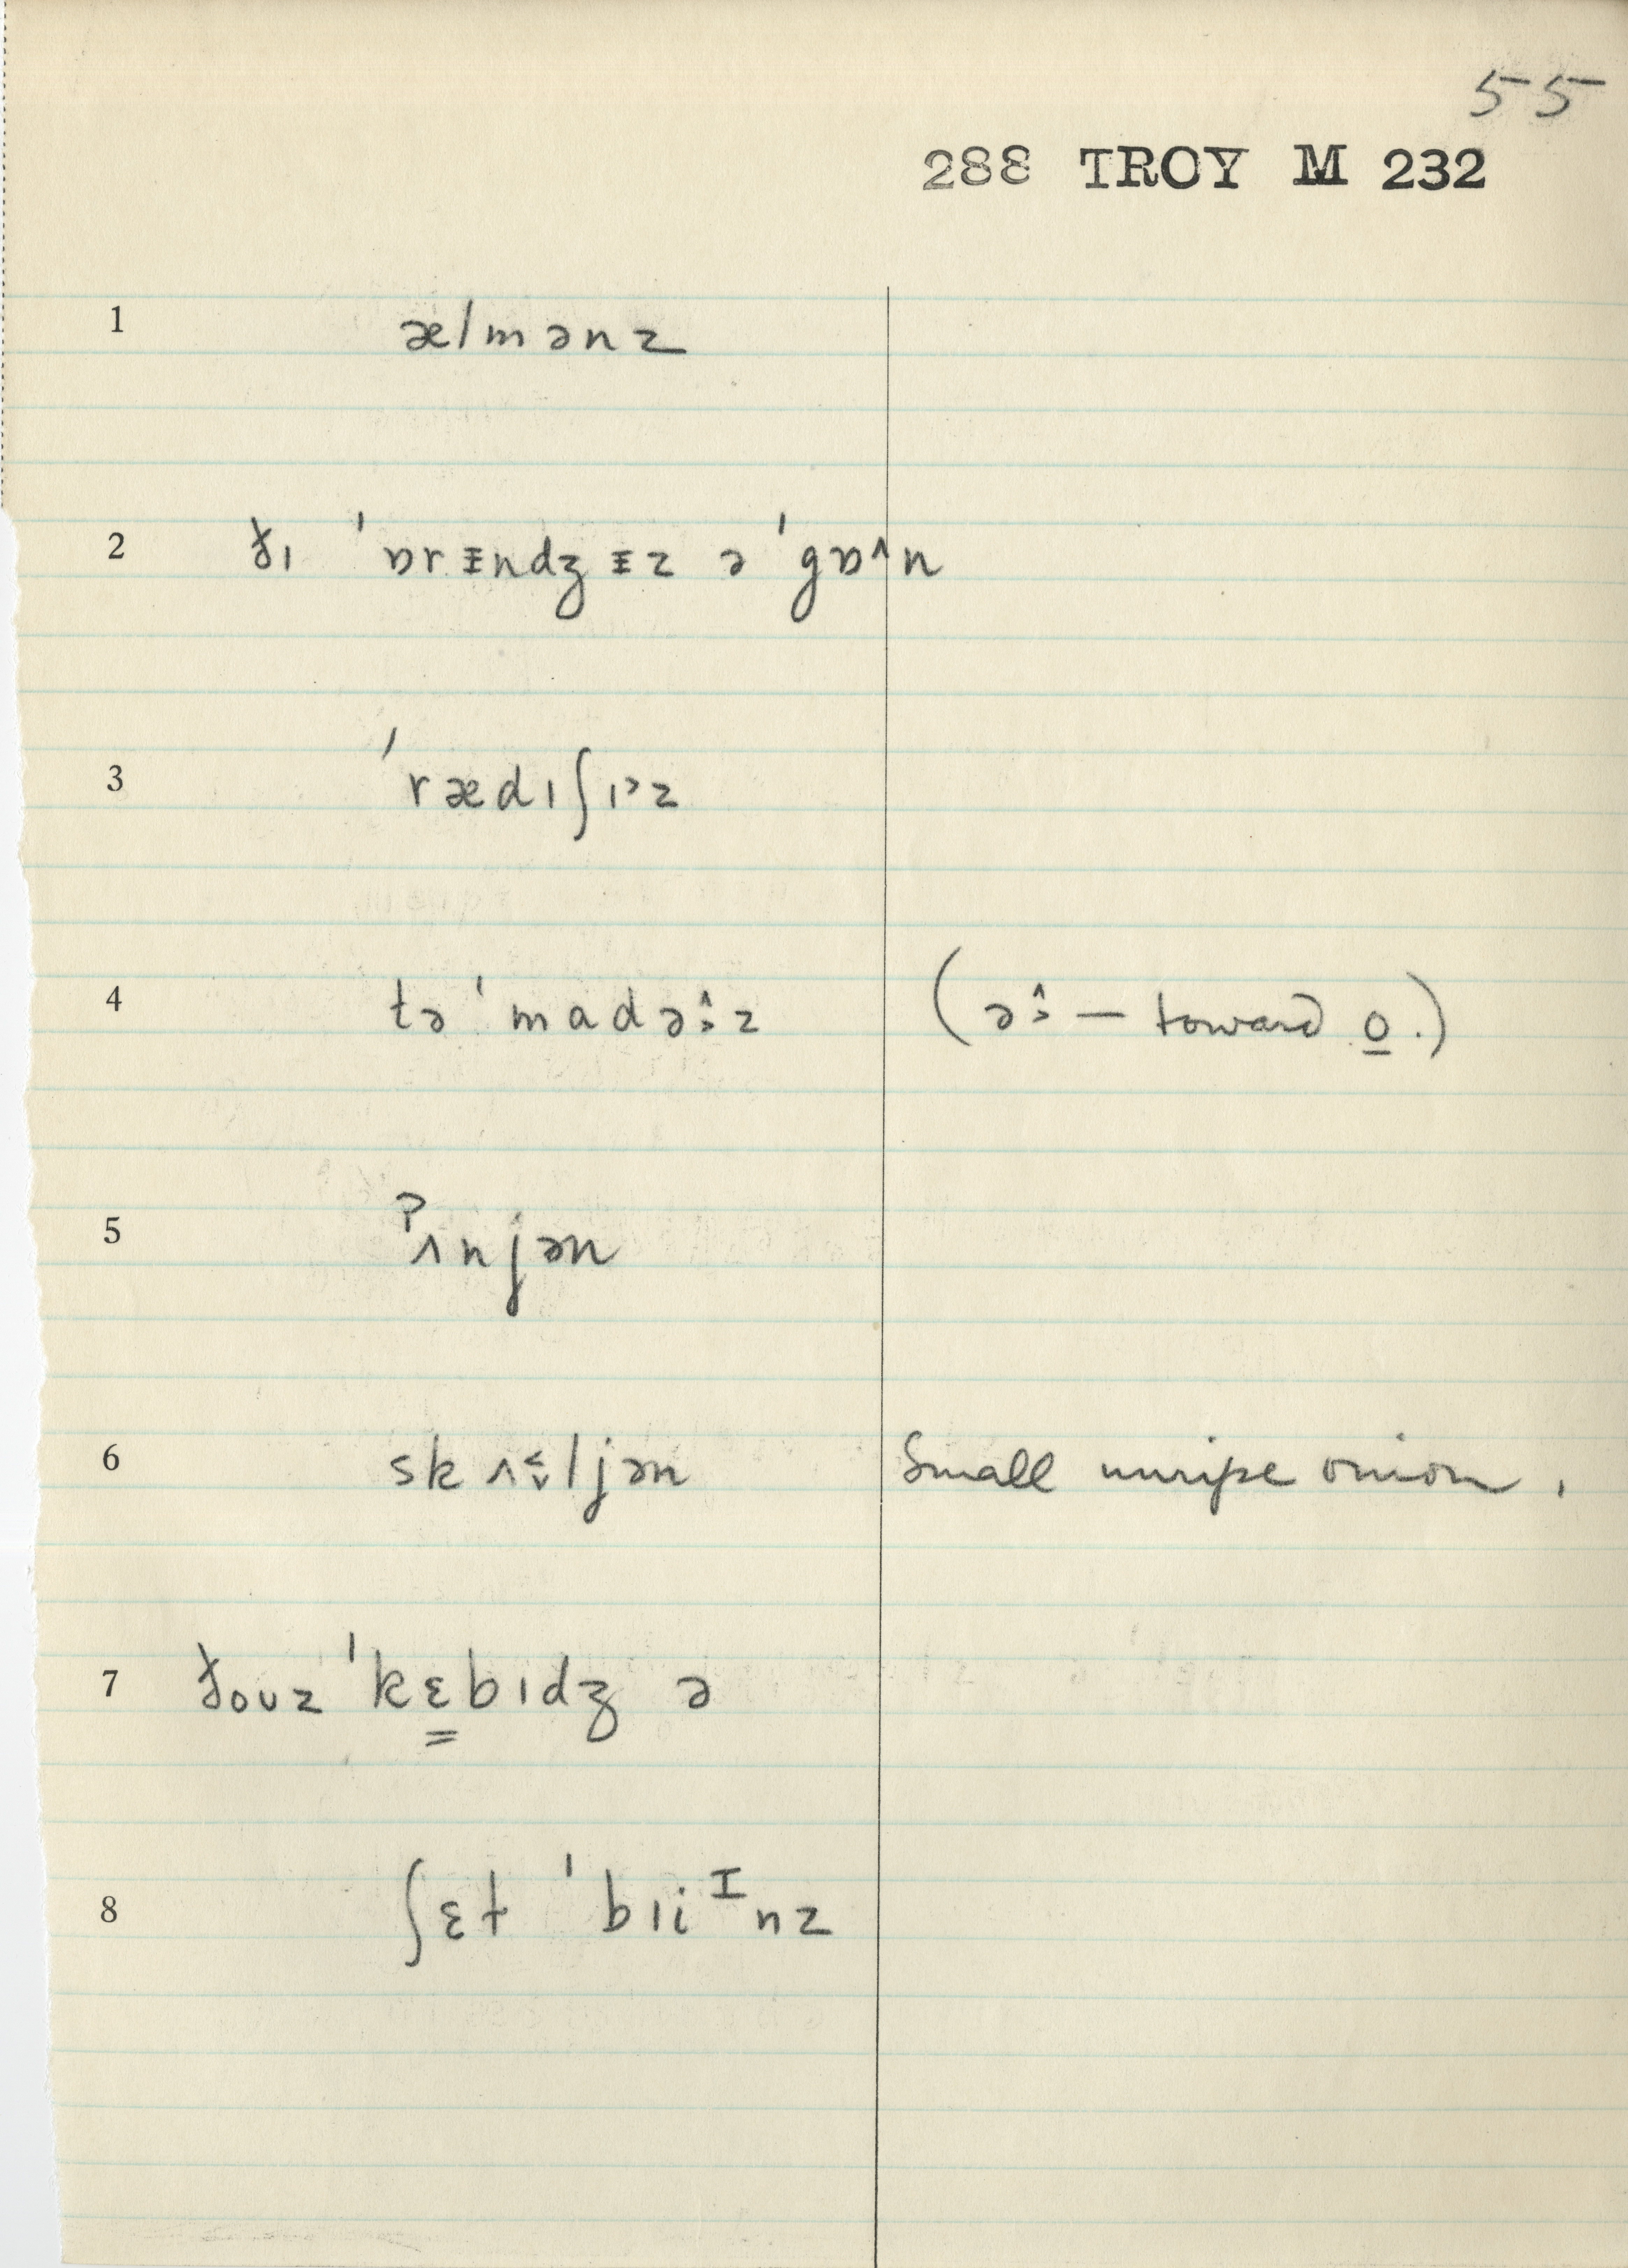 55
288 TROY M 232
1 ælmənz
2 ðɪ ˈɒrᵻndʒᵻz ə ˈgɒ^n
3 ˈrædɪʃɪ˃z
4 tə ˈmadə˔˃z (ə˔˃ — toward o̲.)
5 ˀʌnjən
6 skʌ˂˅ljən Small unripe onion.
7 ðouz ˈkɛ̳bɪdʒ ə
8 ʃɛt ˈbɪiᴵnz